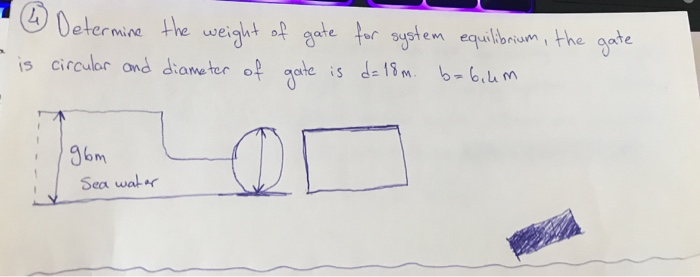 ④ Determine the weight of gate for system equilibrium, the gate
is circular and diameter of gate is d=18m. b=6,4m
96m
Sea water